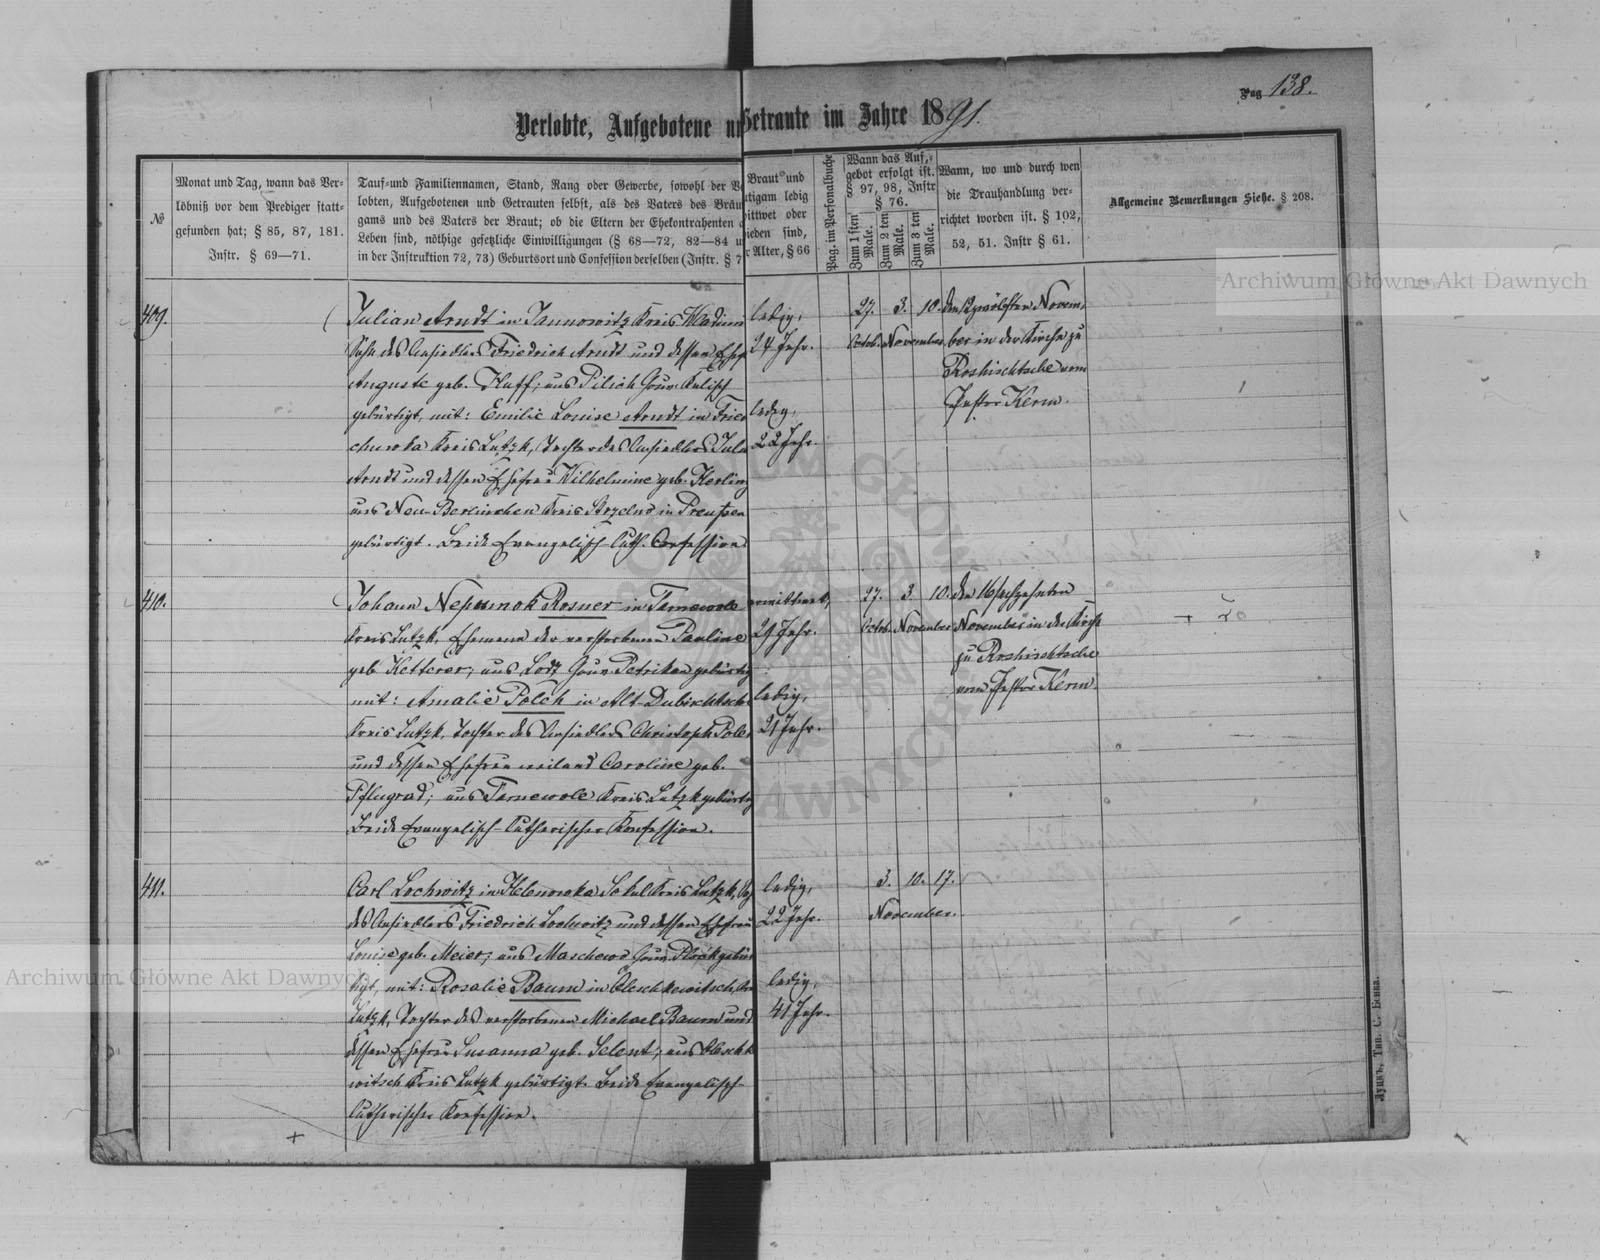 Pag 138.
Verlobte, Aufgebotene un Getraute im Jahre 1891.
№
Monat und Tag, wann das Ver-
löbniß vor dem Prediger statt-
gefunden hat; § 85, 87, 181.
Instr. § 69—71.
Tauf- und Familiennamen, Stand, Rang oder Gewerbe, sowohl der V
lobten, Aufgebotenen und Getrauten selbst, als des Vaters des Bräu
gams und des Vaters der Braut; ob die Eltern der Ehekontrahenten
Leben sind, nöthige gesetzliche Einwilligungen (§ 68—72, 82—84 u
in der Instruktion 72, 73) Geburtsort und Confession derselben (Instr. § 7
Braut und
tigam ledig
ittwet oder
ieden sind,
r Alter, § 66
Pag. im Personalbuche
Wann das Auf-
gebot erfolgt ist.
§ 97, 98, Instr
§ 76.
Zum 1 sten Male.
Zum 2 ten Male.
Zum 3 ten Male.
Wann, wo und durch wen
die Trauhandlung ver-
richtet worden ist. § 102,
52, 51. Instr § 61.
Allgemeine Bemerkungen Siehe. § 208.
Archiwum Główne Akt Dawnych
409.
Julian Arndt in Jannowitz Kreis Wladim
Sohn des Ansiedlers Friedrich Arndt und dessen Ehef
Auguste geb. Huff; aus Pilich Gouv. Kalisch
gebürtigt, mit: Emilie Louise Arndt in Fried
chuwka Kreis Lutzk, Tochter des Ansiedlers Juli
Arndt und dessen Ehefrau Wilhelmine geb. Kerling
aus Neu-Berkinchen Kreis Strzelno in Preußen
gebürtigt. Beide Evangelisch-Luth. Confession
ledig,
24 Jahr.
ledig,
22 Jahr.
27. 3. 10.
Octob. November.
den Zwölften Novem-
ber in der Kirche zu
Roshischtsche vom
Pastor Kerm.
410.
Johann Nepumok Rosner in Tarnewole
Kreis Lutzk, Ehemann der verstorbenen Pauline
geb. Ketterer; aus Lodz Gouv. Petrikau gebürtig
mit: Amalie Polch in Alt-Dubischtsch
Kreis Lutzk, Tochter des Ansiedlers Christoph Polc
und dessen Ehefrau weiland Caroline geb.
Pflugrad; aus Tarnewole Kreis Lutzk gebürtig
Beide Evangelisch-Lutherischer Konfession.
verwittwet,
29 Jahr.
ledig,
21 Jahr.
27. 3. 10.
Octob. November
den 16 sechzehnten
November in der Kirche
zu Roshischtsche
vom Pastor Kerm.
411.
Carl Lochwitz in Helenowka Sokul Kreis Lutzk, So
des Ansiedlers Friedrich Lochwitz und dessen Ehefrau
Louise geb. Meier; aus Maschewo Gouv. Plozk gebür
tigt, mit: Rosalie Baum in Oleschkewitsch, Kre
Lutzk, Tochter des verstorbenen Michael Baum und
dessen Ehefrau Susanna geb. Selent; aus Oleschk
witsch Kreis Lutzk gebürtigt. Beide Evangelisch-
Lutherischer Konfession.
ledig,
22 Jahr.
ledig,
41 Jahr.
3. 10. 17.
November.
Archiwum Główne Akt Dawnych
Луцкъ, Тип. С. Бенка.